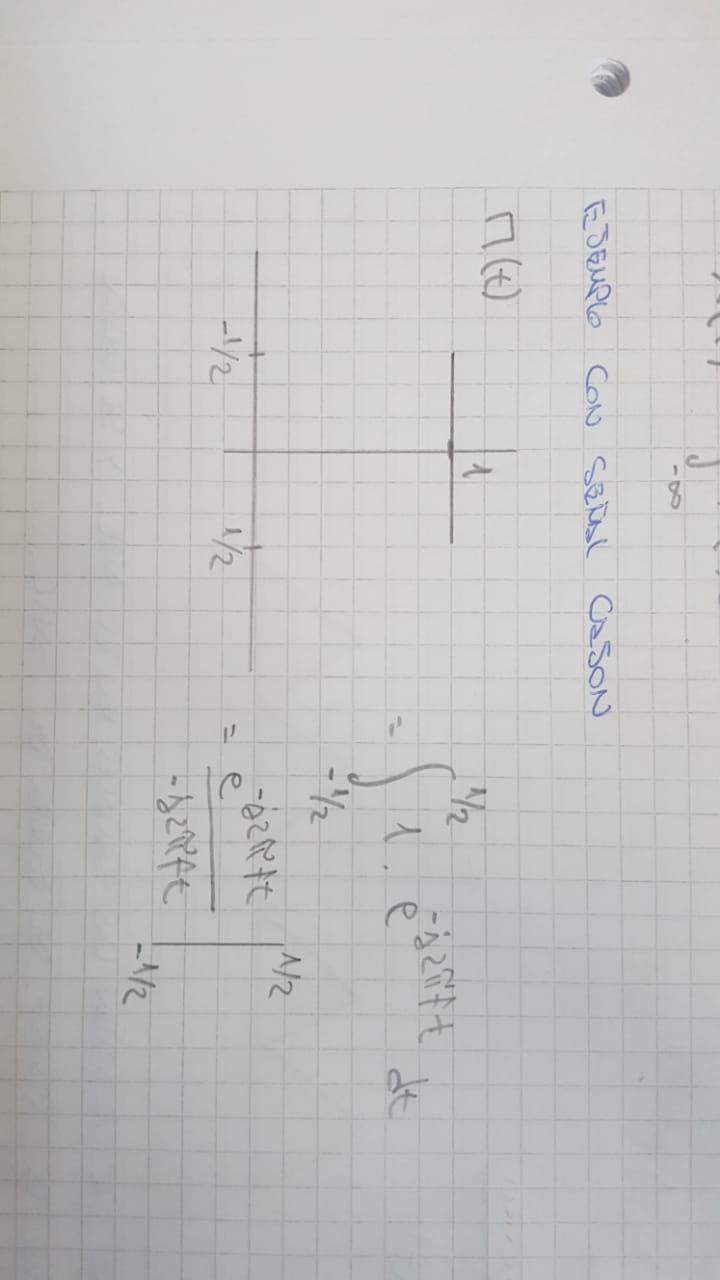 -∞
EJEMPLO CON SEÑAL CAJON
Π(t)
1
-1/2 1/2
= ∫ 1/2 -1/2 1 . e^-j2πft dt
= e^-j2πft / -j2πft | 1/2 -1/2